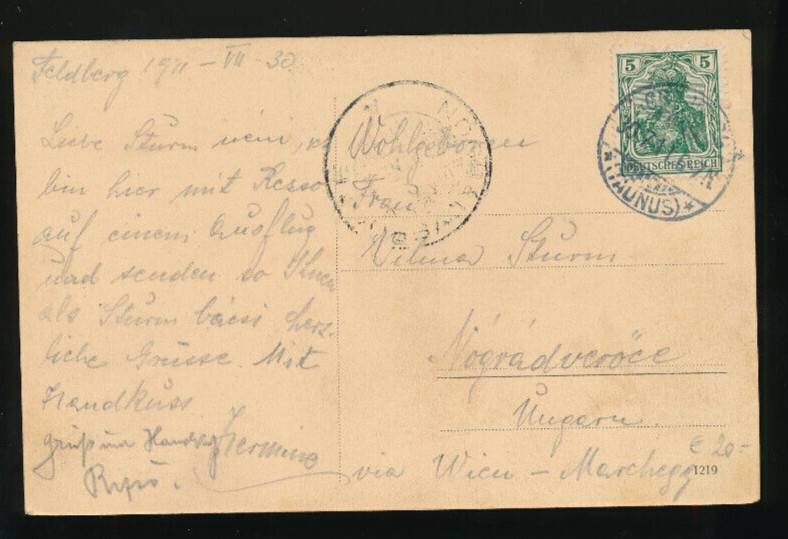 Feldberg 1911 - VII - 30
Liebe Sturm néni,
bin hier mit Resso
auf einem Ausflug
und senden so Ihnen
als Sturm bácsi herz-
liche Grüsse. Mit
Handkuss
Hermine
gruß und
Wohlgeboren
Frau
Vilma Sturm
Nógrádverőce
Ungarn.
via Wien - Marchegg
€ 20-
1219
5 5
DEUTSCHES REICH
*(TAUNUS)*